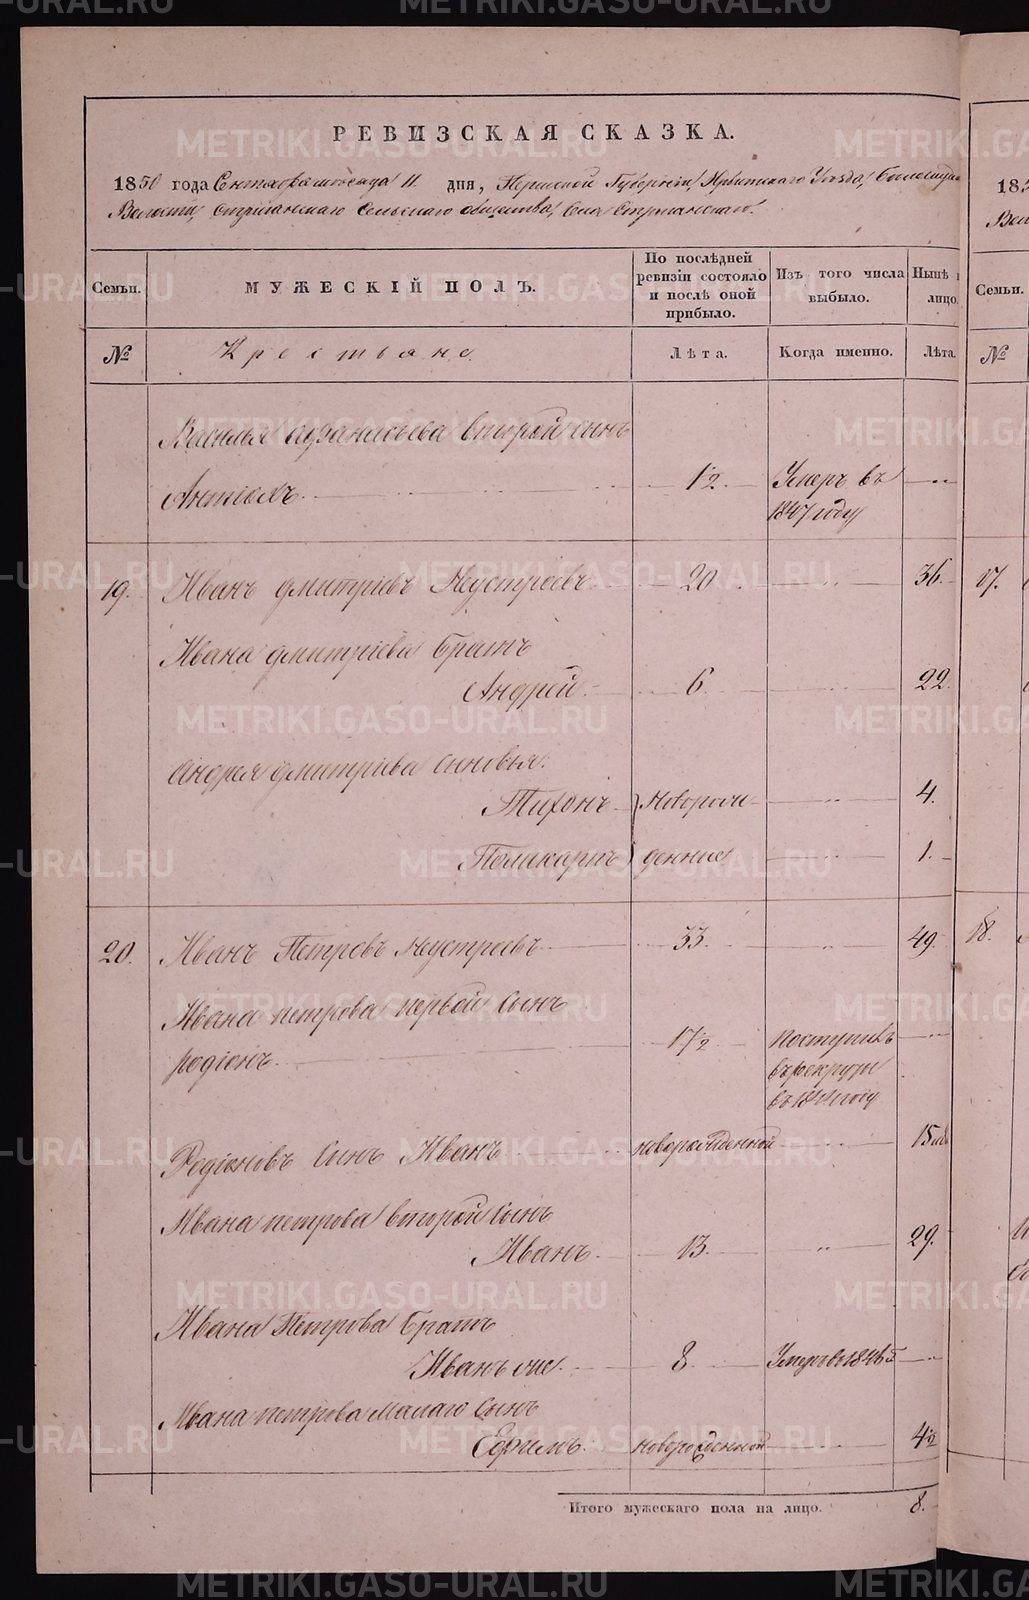 METRIKI.GASO-URAL.RU
РЕВИЗСКАЯ СКАЗКА.
1850 года Сентября месяца 11 дня, Пермской Губернiи, Ирбитскаго Уѣзда,
Волости, Стриганскаго Сельскаго общества, Села Стриганскаго.
Семьи.
МУЖЕСКІЙ ПОЛЪ.
По послѣдней
ревизіи состояло
и послѣ оной
прибыло.
Изъ того числа
выбыло.
Нынѣ
лицо
№
Крестьяне
Лѣта.
Когда именно.
Лѣта.
Василья Афанасьева второй сынъ
Антипъ 1/2 Умеръ въ
1847 году
19. Иванъ Дмитріевъ Неустроевъ 20 36.
Ивана Дмитріева Братъ
Андрей 6. 22.
Андрея Дмитріева сыновья:
Тихонъ Новорож- 4.
Поликарпъ денные 1.
20. Иванъ Петровъ Неустроевъ 33. 49.
Ивана Петрова первой Сынъ
Родіонъ 17 1/2 Поступилъ
въ рекруты
въ году
Родіоновъ Сынъ Иванъ новорожденной 15
Ивана Петрова второй Сынъ
Иванъ 13. 29.
Ивана Петрова Братъ
Иванъ же 8 Умеръ въ
Ивана Петрова Малаго Сынъ
Ефимъ новорожденной 4 1/2
Итого мужескаго пола на лицо. 8.
185
Семьи.
№
17.
18.